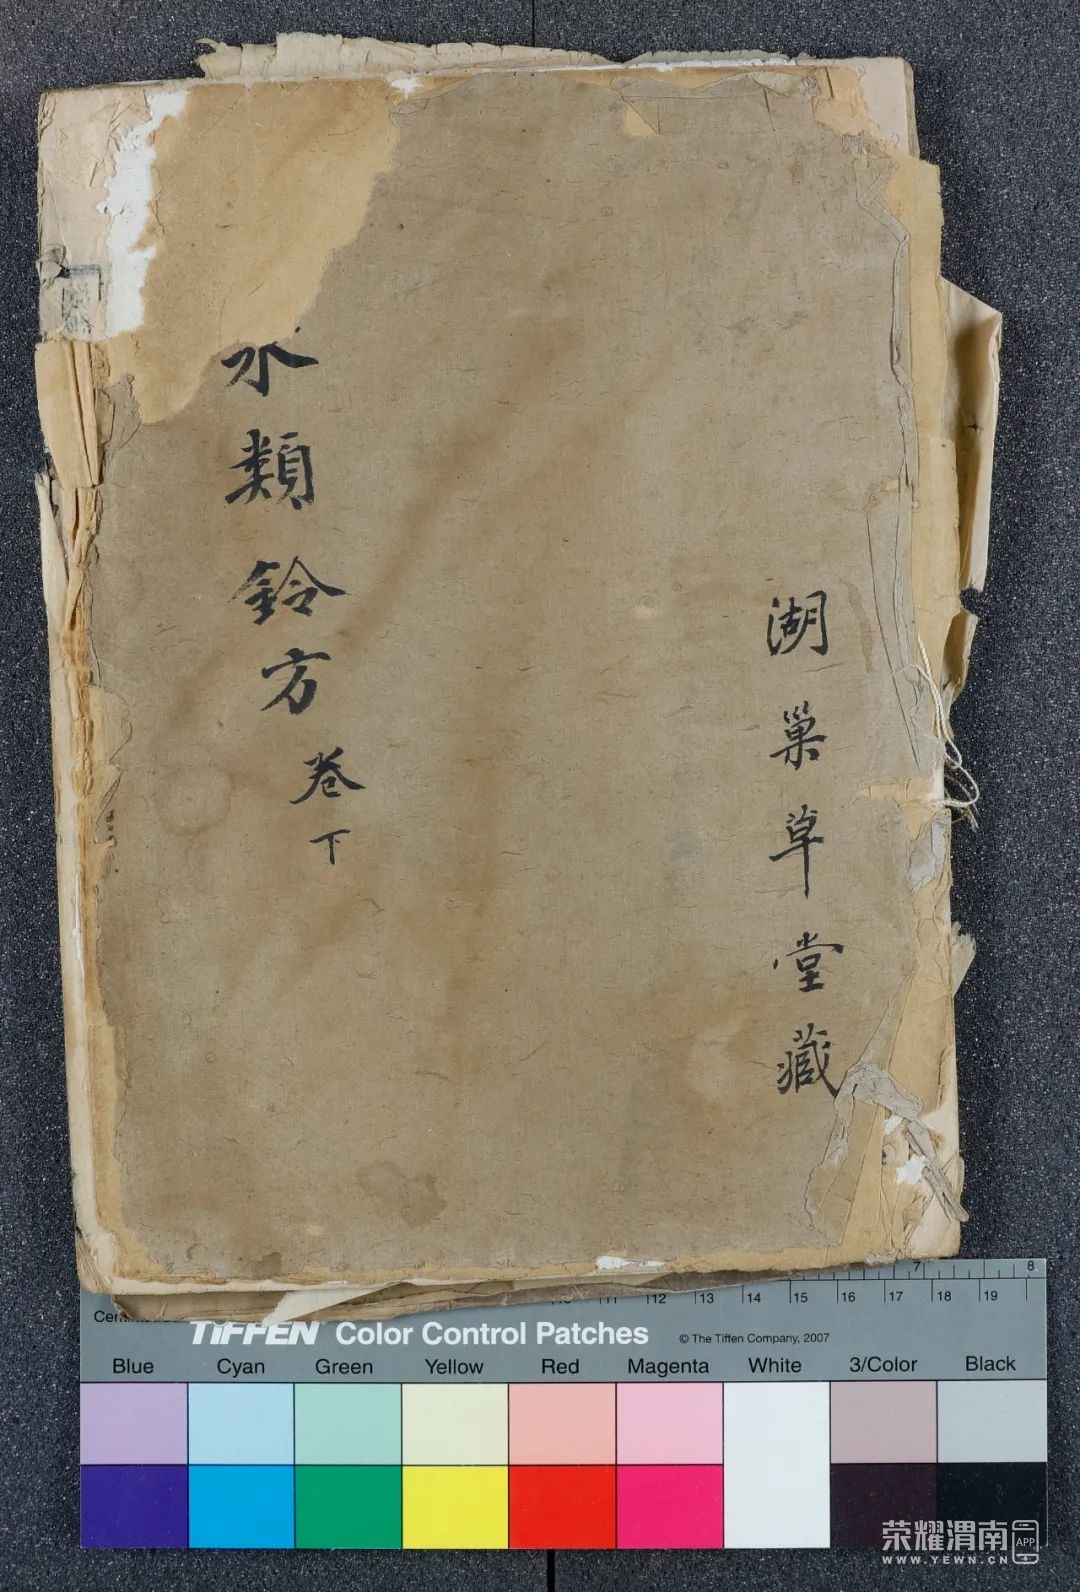 永類鈴方 卷下
湖巢草堂藏
7 8
12 13 14 15 16 17 18 19
TIFFEN® Color Control Patches © The Tiffen Company, 2007
Blue Cyan Green Yellow Red Magenta White 3/Color Black
荣耀渭南 APP
WWW.YEWN.CN